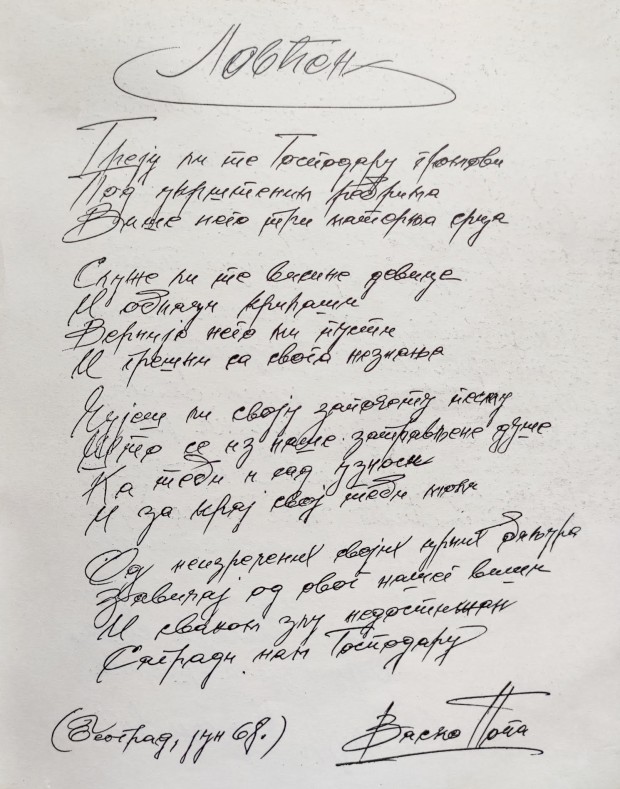 Ловћен
Греју ли те Господару громови
Под укрштеним ребрима
Више него три матерња срца
Служе ли те висине девице
И облаци крилаши
Верније него ми пусти
И грешни са свога незнања
Чујеш ли своју започету песму
Што се из наше затрављене душе
Ка теби и сад узноси
И за крај свој теби моли
Од неизречених својих црних
Завичај од ове нашег
И сваком злу недостижан
Сагради нам Господару
(Београд, јун 68.)
Васко Попа